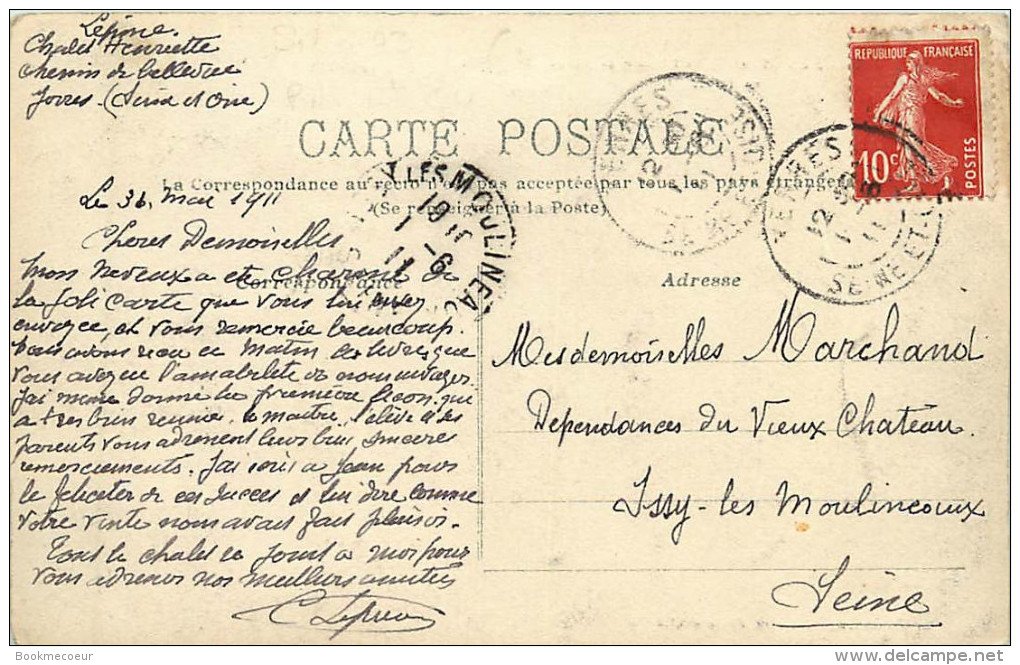 Lepine
Chalet Henriette
Chemin de bellevue
(Seine et Oise)
REPUBLIQUE FRANÇAISE
10c
POSTES
CARTE POSTALE
La Correspondance au recto n'est pas acceptée par tous les pays étrangers
(Se renseigner à la Poste)
Le 31, Mai 1911
Y LES MOULINEA
SEINE-ET-
Cheres Demoiselles
Mon Neveux a ete charmé de
Correspondance
Adresse
la Joli carte que vous lui avez
envoyee, et vous remercie beaucoup.
ce Matin les livres que
vous avez eu l'amabilité de nous
J'ai meme donné la première leçon, qui
a tres bien reussie, le maitre, l'élève & les
parents vous adressent leurs bien sinceres
remerciements. J'ai ecris a Jean pour
le feliciter de ces succes et lui dire comme
votre visite nous avait fait plaisir.
Tout le chalet se joint a moi pour
vous adresser nos meilleurs amitiés
Mesdemoiselles Marchand
Dependances du Vieux Chateau.
Issy-les Moulineaux
Seine
Bookmecoeur
www.delcampe.net